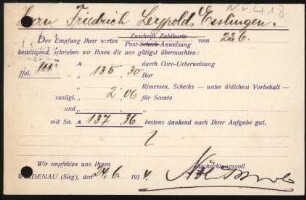 Herrn Friedrich Leypold, Esslingen.
Den Empfang Ihrer werten Zuschrift Zahlkarte vom 22/6.
Post-Scheck-Anweisung
bestätigend, schreiben wir Ihnen die uns gütigst überwachten:
M durch Giro-Ueberweisung
M 135.30 Bar
M Rimessen, Schecks - unter üblichem Vorbehalt -
zuzügl. M 2.06 für Sconto
und M
mit Sa. M 137.36 bestens dankend nach Ihrer Aufgabe gut.
Wir empfehlen uns Ihnen
WEIDENAU (Sieg), den 24/6. 1914.